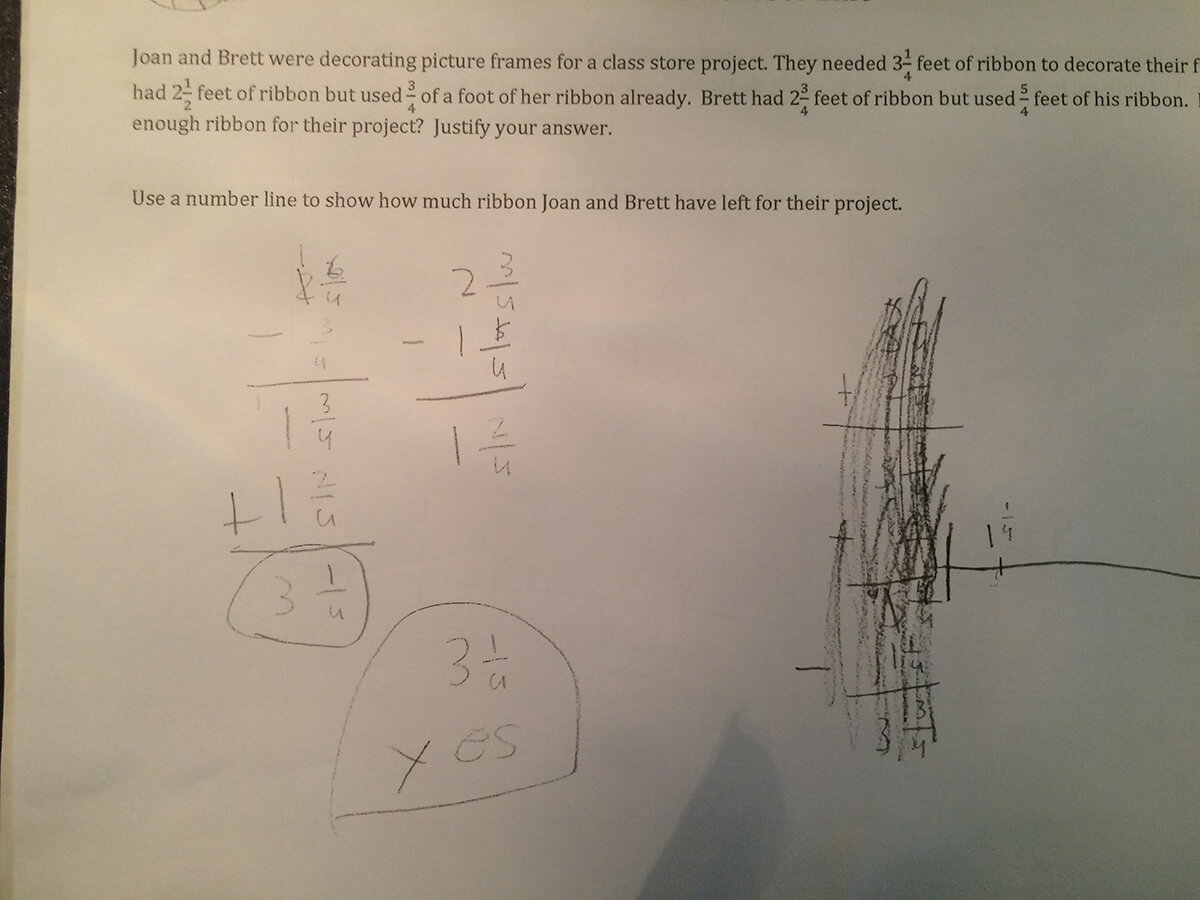 Joan and Brett were decorating picture frames for a class store project. They needed 3 1/4 feet of ribbon to decorate their
had 2 1/2 feet of ribbon but used 3/4 of a foot of her ribbon already. Brett had 2 3/4 feet of ribbon but used 5/4 feet of his ribbon.
enough ribbon for their project? Justify your answer.
Use a number line to show how much ribbon Joan and Brett have left for their project.
1
2 6/4
- 3/4
1 3/4
+ 1 2/4
3 1/4
2 3/4
- 1 5/4
1 2/4
3 1/4
yes
1 1/4
+
+
- 1 1/4
3 3/4